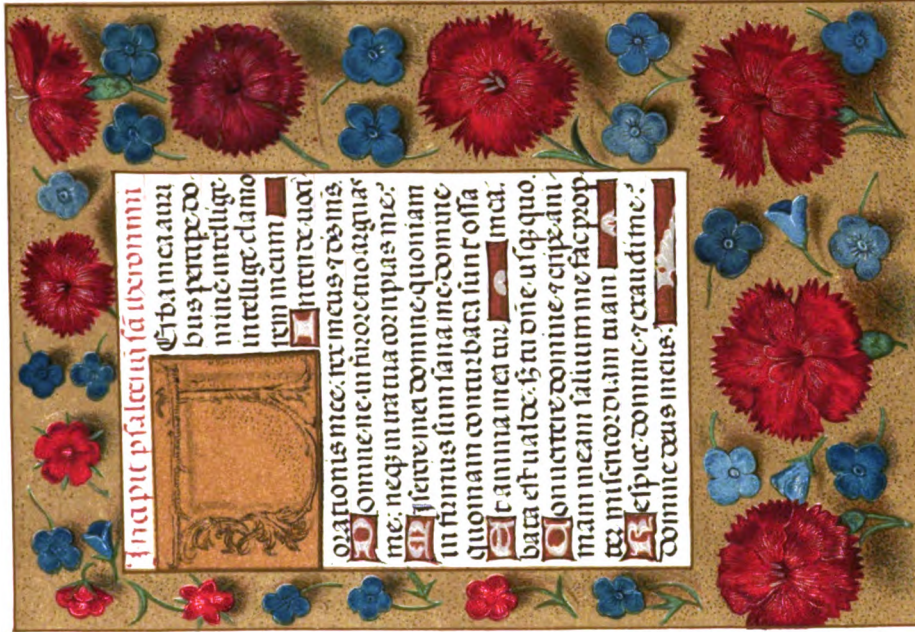 Incipit psalteriū sācti iheronimi
Erba mea auri
bus percipe do
mine intellige
intellige clamo
rem meum
Intende uoci
orationis mee: rex meus ⁊ ds ms.
Domine ne in furore tuo arguas
me: neqꝫ in ira tua corripias me:
Miserere mei domine quoniam
infirmus sum sana me domine
quoniam conturbata sunt ossa
Et anima mea tur mea.
bata est ualde: sꝫ tu dn̄e usqꝫquo.
Conuertere domine ⁊ eripe ani
mam meam saluum me fac prop
ter misericordiam tuam
Respice domine ⁊ exaudi me:
domine deus meus: